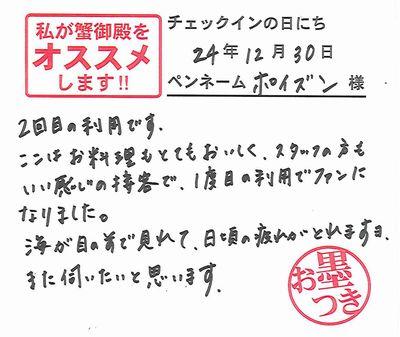 私が蟹御殿を
オススメ
します!!
チェックインの日にち
24年12月30日
ペンネーム ポイズン 様
2回目の利用です。
ここはお料理もとてもおいしく、スタッフの方も
いい感じの接客で、1度目の利用でファンに
なりました。
海が目の前で見れて、日頃の疲れがとれます。
また伺いたいと思います。
お墨つき